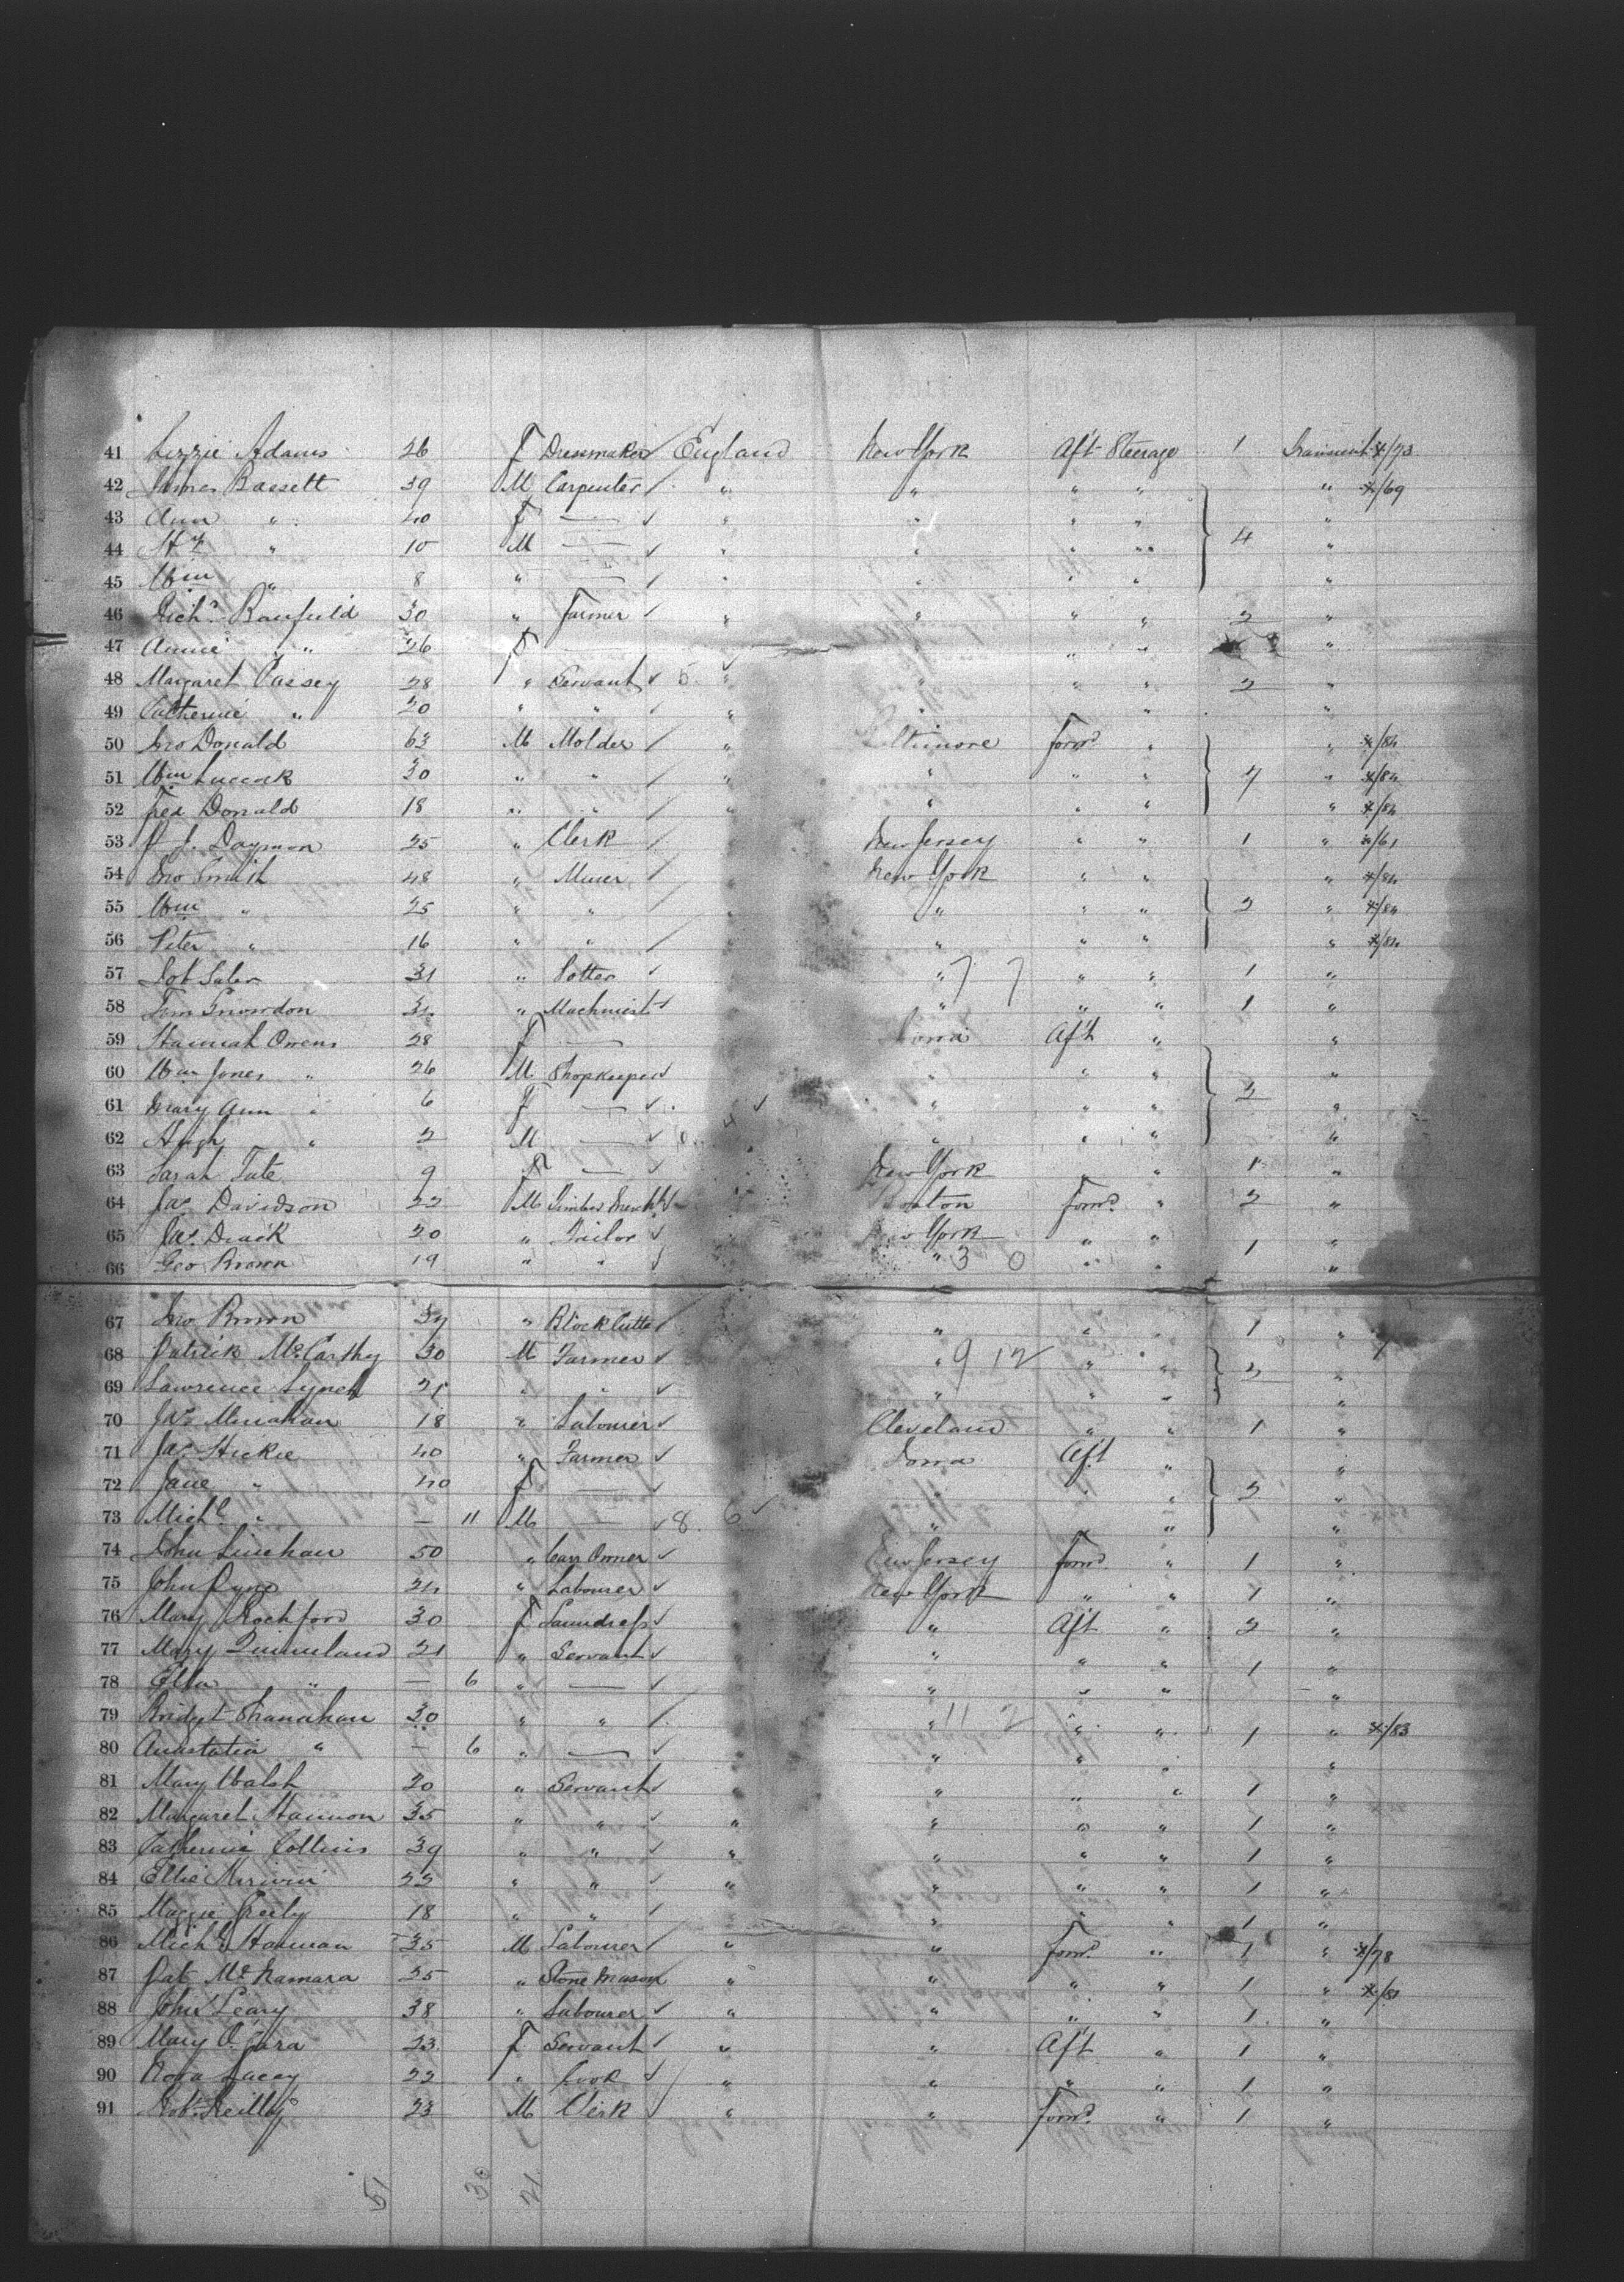 41 Lizzie Adams 26 F Dressmaker England New York Aft Steerage 1 Transient */73
42 James Bassett 39 M Carpenter " " " " " */69
43 Ann " 40 F — " " " " "
44 Hy " 10 M — " " " " 4 "
45 Wm " 8 " — " " " " "
46 Richd Banfield 30 " Farmer " " " " 2 "
47 Annie " 26 F " " "
48 Margaret Cassey 28 " Servant " " " " 2 "
49 Catherine " 20 " " " " " "
50 Jno Donald 63 M Molder " Baltimore Forwd " " */84
51 Wm 30 " " " " " " " */84
52 Fred Donald 18 " " " " " " " */84
53 25 " Clerk New Jersey " " 1 " */61
54 Jno Smith 48 " Miner " New York " " " */84
55 Wm " 25 " " " " " " " */84
56 Peter " 16 " " " " " " " */84
57 31 " Potter " 7 7 " " 1 "
58 Tom Snowdon " Machinist " " " 1 "
59 Hannah Owens 28 F — Iowa Aft " "
60 Wm Jones " 26 M Shopkeeper " " " "
61 Mary Ann " 6 F — " " " "
62 Hugh " 2 M — " " " "
63 Sarah Tate 9 F — New York " " 1 "
64 Jas Davidson 22 M Timber Mercht Boston Forwd " 2 "
65 Jas 20 " New York " " "
66 Geo Brown 19 " " " 3 0 " " 1 "
67 Jno Brown " Block Cutter " " " 1 "
68 Patrick McCarthy 30 M Farmer " 9 12 " " "
69 Lawrence Lynch " " " " " "
70 Jas Minahan 18 " Labourer Cleveland " " 1 "
71 Jas Hickie 40 " Farmer Iowa Aft " "
72 Jane " 40 F — " " " "
73 Michl " — 11 M — 8 6 " " " "
74 John Linehan 50 " Carr Owner New Jersey Forwd " 1 "
75 John Ryne 24 " Labourer New York " " 1 "
76 Mary Rochford 30 F Laundress " Aft " 2 "
77 Mary Quinnland 21 " Servant " " " 1 "
78 Ella " — 6 " — " " " "
79 Bridget Shanahan 30 " " " 11 2 " " 1 " */83
80 Anastatia " — 6 " — " " " " "
81 Mary Walsh 20 " Servant " " " " 1 "
82 Margaret Hannon 35 " " " " " " 1 "
83 Catherine Collins 39 " " " " " " 1 "
84 Ellie 22 " " " " " " 1 "
85 Maggie 18 " " " " " 1 "
86 Michl Hannan 25 M Labourer " " Forwd " 1 " */78
87 Pat McNamara 25 " Stone Mason " " " " 1 "
88 John Leary 38 " Labourer " " " " 1 "
89 Mary O'Gara 23 F Servant " " Aft " 1 "
90 Nora Lacey 22 " Cook " " " " 1 "
91 Robt Reilly 23 M Clerk " " Forwd " 1 "
51 30 21